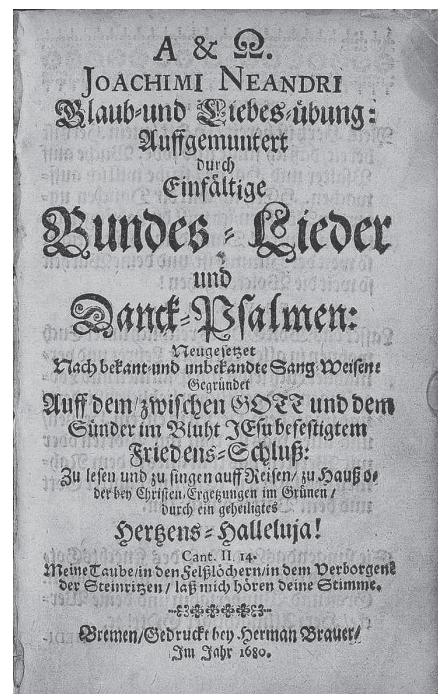 A & Ω.
JOACHIMI NEANDRI
Glaub-und Liebes-übung:
Auffgemuntert
durch
Einfältige
Bundes-Lieder
und
Danck-Psalmen:
Neugesetzet
Nach bekant-und unbekandte Sang-Weisen:
Gegründet
Auff dem/zwischen GOTT und dem
Sünder im Bluht JEsu befestigtem
Friedens-Schluß:
Zu lesen und zu singen auff Reisen/ zu Hauß o-
der bey Christen-Ergetzungen im Grünen/
durch ein geheiligtes
Hertzens-Halleluja!
Cant. II. 14.
Meine Taube/in den Felßlöchern/in dem Verborgene
der Steinritzen/ laß mich hören deine Stimme.
Bremen/Gedruckt bey Herman Brauer/
Im Jahr 1680.